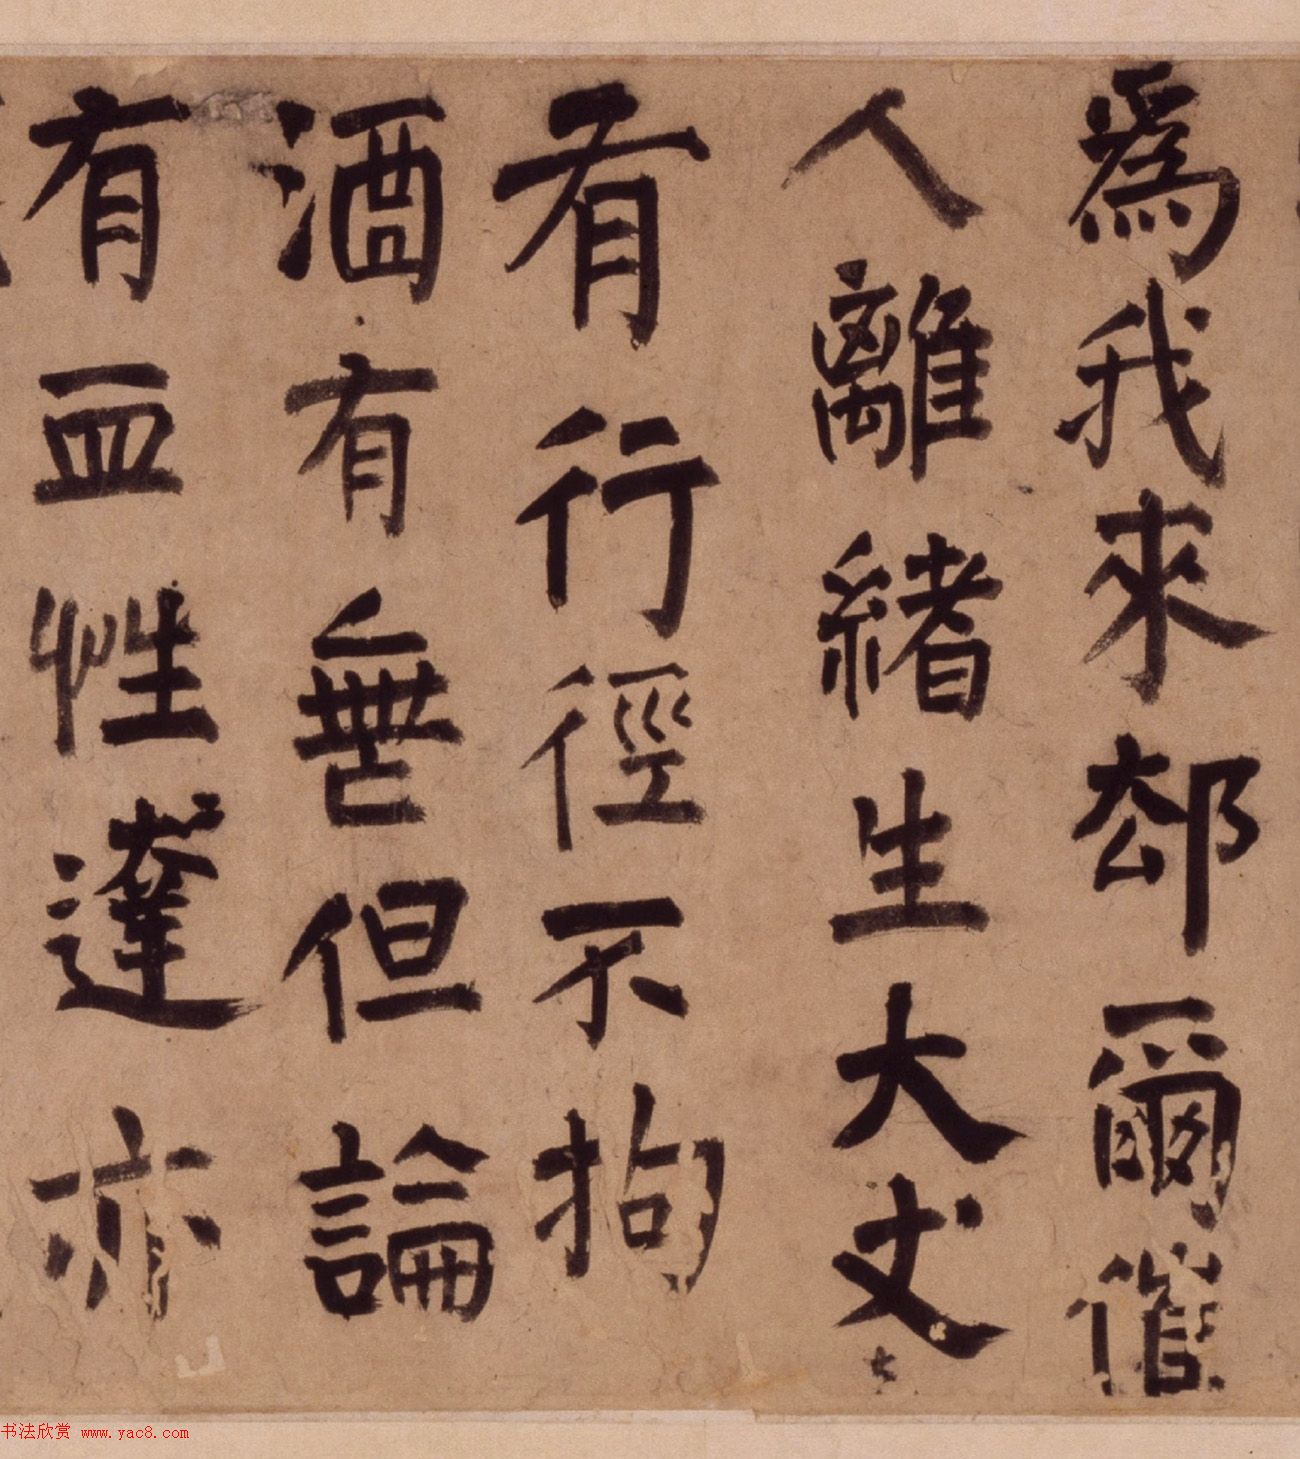 為我來却爾催
人離緒生大丈
有行徑不拘
酒有無但論
有血性達亦
书法欣赏 www.yac8.com